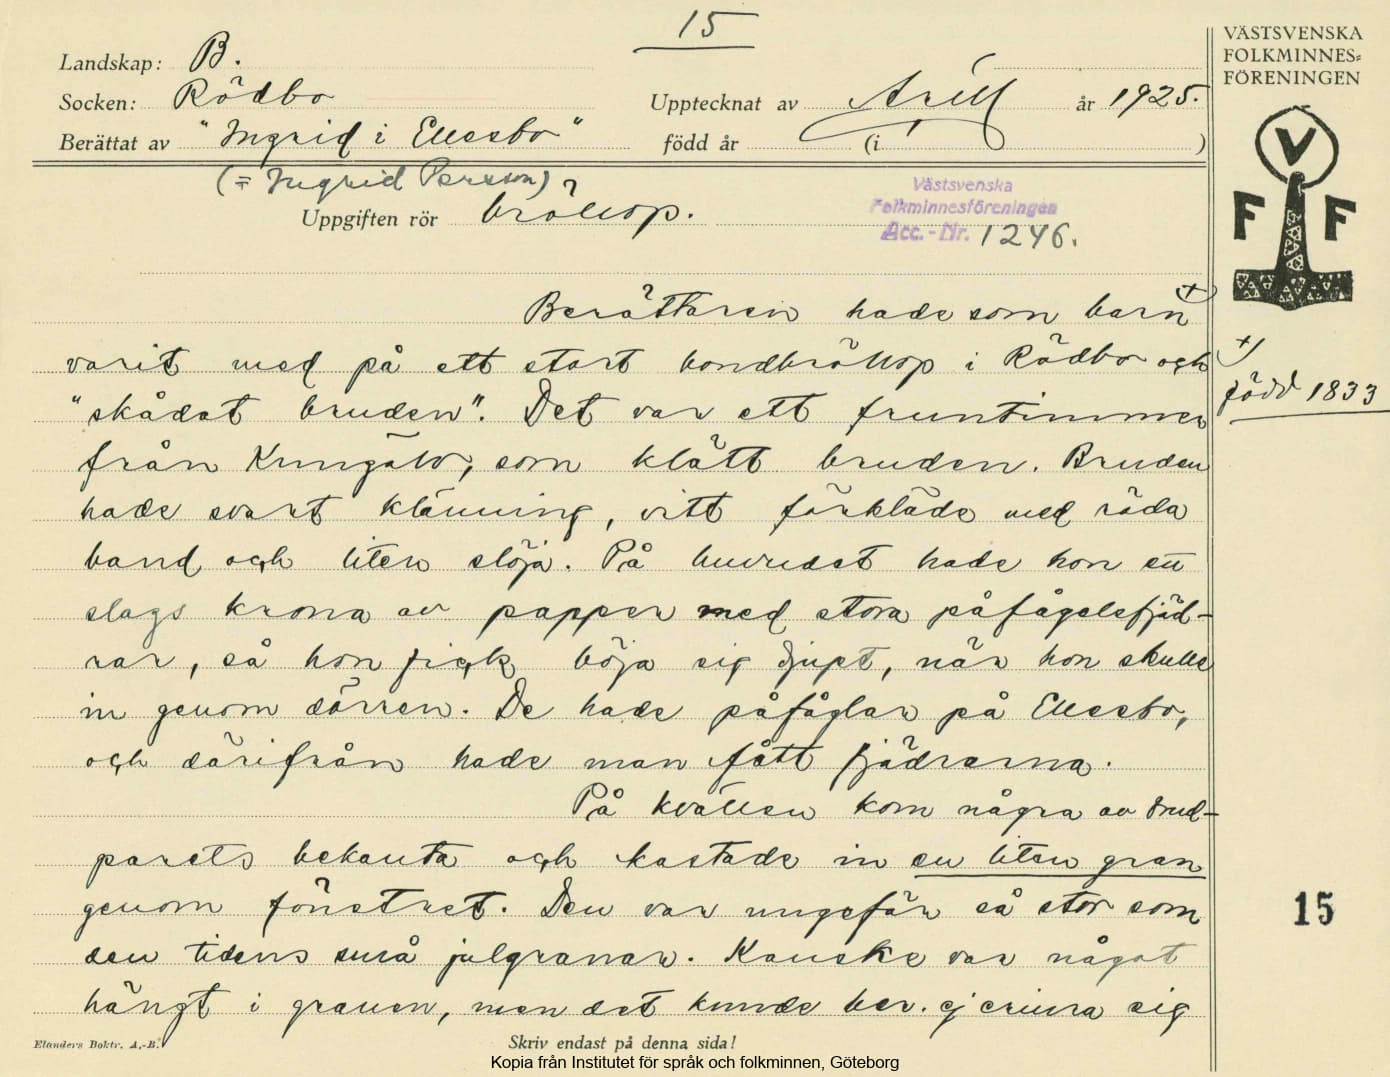 15
VÄSTSVENSKA
FOLKMINNES=
FÖRENINGEN
Landskap: B.
Socken: Rödbo
Upptecknat av Arill år 1925.
Berättat av "Ingrid i Ellesbo"
född år (i )
(= Ingrid Persson)
Uppgiften rör bröllop.
Västsvenska
Folkminnesföreningen
Acc.-Nr. 1246.
V
F F
Berättaren hade som barn +)
varit med på ett stort bondbröllop i Rödbo och
"skådat bruden". Det var ett fruntimmer
från Kungälv, som klätt bruden. Bruden
hade svart klänning, vitt förkläde med röda
band och liten slöja. På huvudet hade hon en
slags krona av papper med stora påfågelsfjäd-
rar, så hon fick böja sig djupt, när hon skulle
in genom dörren. De hade påfåglar på Ellesbo,
och därifrån hade man fått fjädrarna.
På kvällen kom några av brud-
parets bekanta och kastade in en liten gran
genom fönstret. Den var ungefär så stor som
den tidens små julgranar. Kanske var något
hängt i granen, men det kunde ber. ej erinra sig
+)
född 1833
15
Elanders Boktr. A.-B.
Skriv endast på denna sida!
Kopia från Institutet för språk och folkminnen, Göteborg